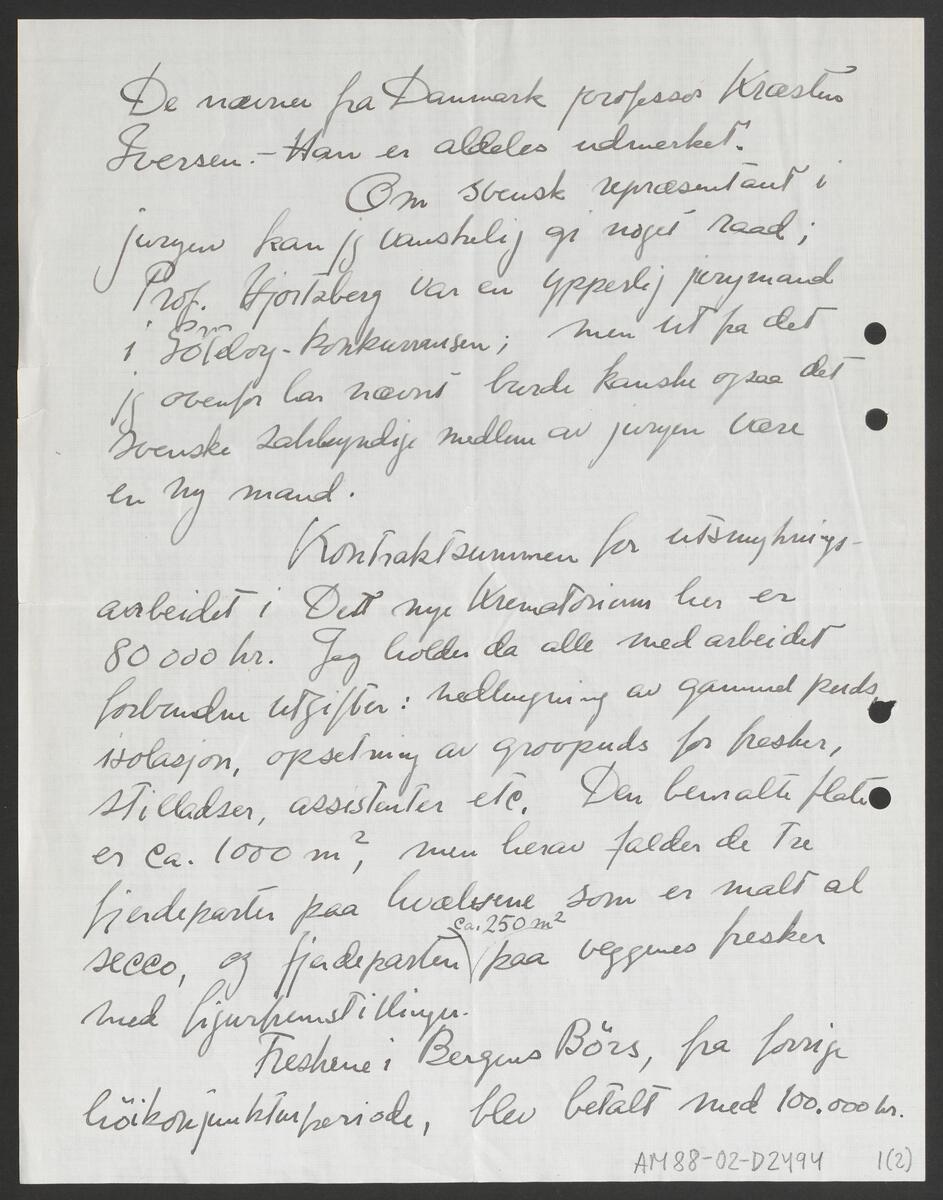 De nævner fra Danmark professor Kræsten
Iversen. - Han er aldeles udmerket.
Om svensk repræsentant i
juryen kan jeg vanskelig gi noget raad;
Prof. Hjortzberg var en ypperlig jurymand
i Göteborg-konkurransen; men ut fra det
jeg ovenfor har nævnt burde kanske ogsaa det
svenske sakkyndige medlem av juryen være
en ny mand.
Kontraktsummen for utsmyknings-
arbeidet i Det nye Krematorium her er
80 000 kr. Jeg holder da alle med arbeidet
forbundne utgifter: nedhugning av gammel puds,
isolasjon, opsetning av grovpuds for fresker,
stilladser, assistenter etc. Den bemalte flate
er ca. 1000 m², men herav falder de tre
fjerdeparter paa hvælvene som er malt al
secco, og fjerdeparten ca. 250 m² paa veggenes fresker
med figurfremstillinger.
Freskene i Bergens Börs, fra forrige
höikonjunkturperiode, blev betalt med 100.000 kr.
AM88-02-D2494 1(2)